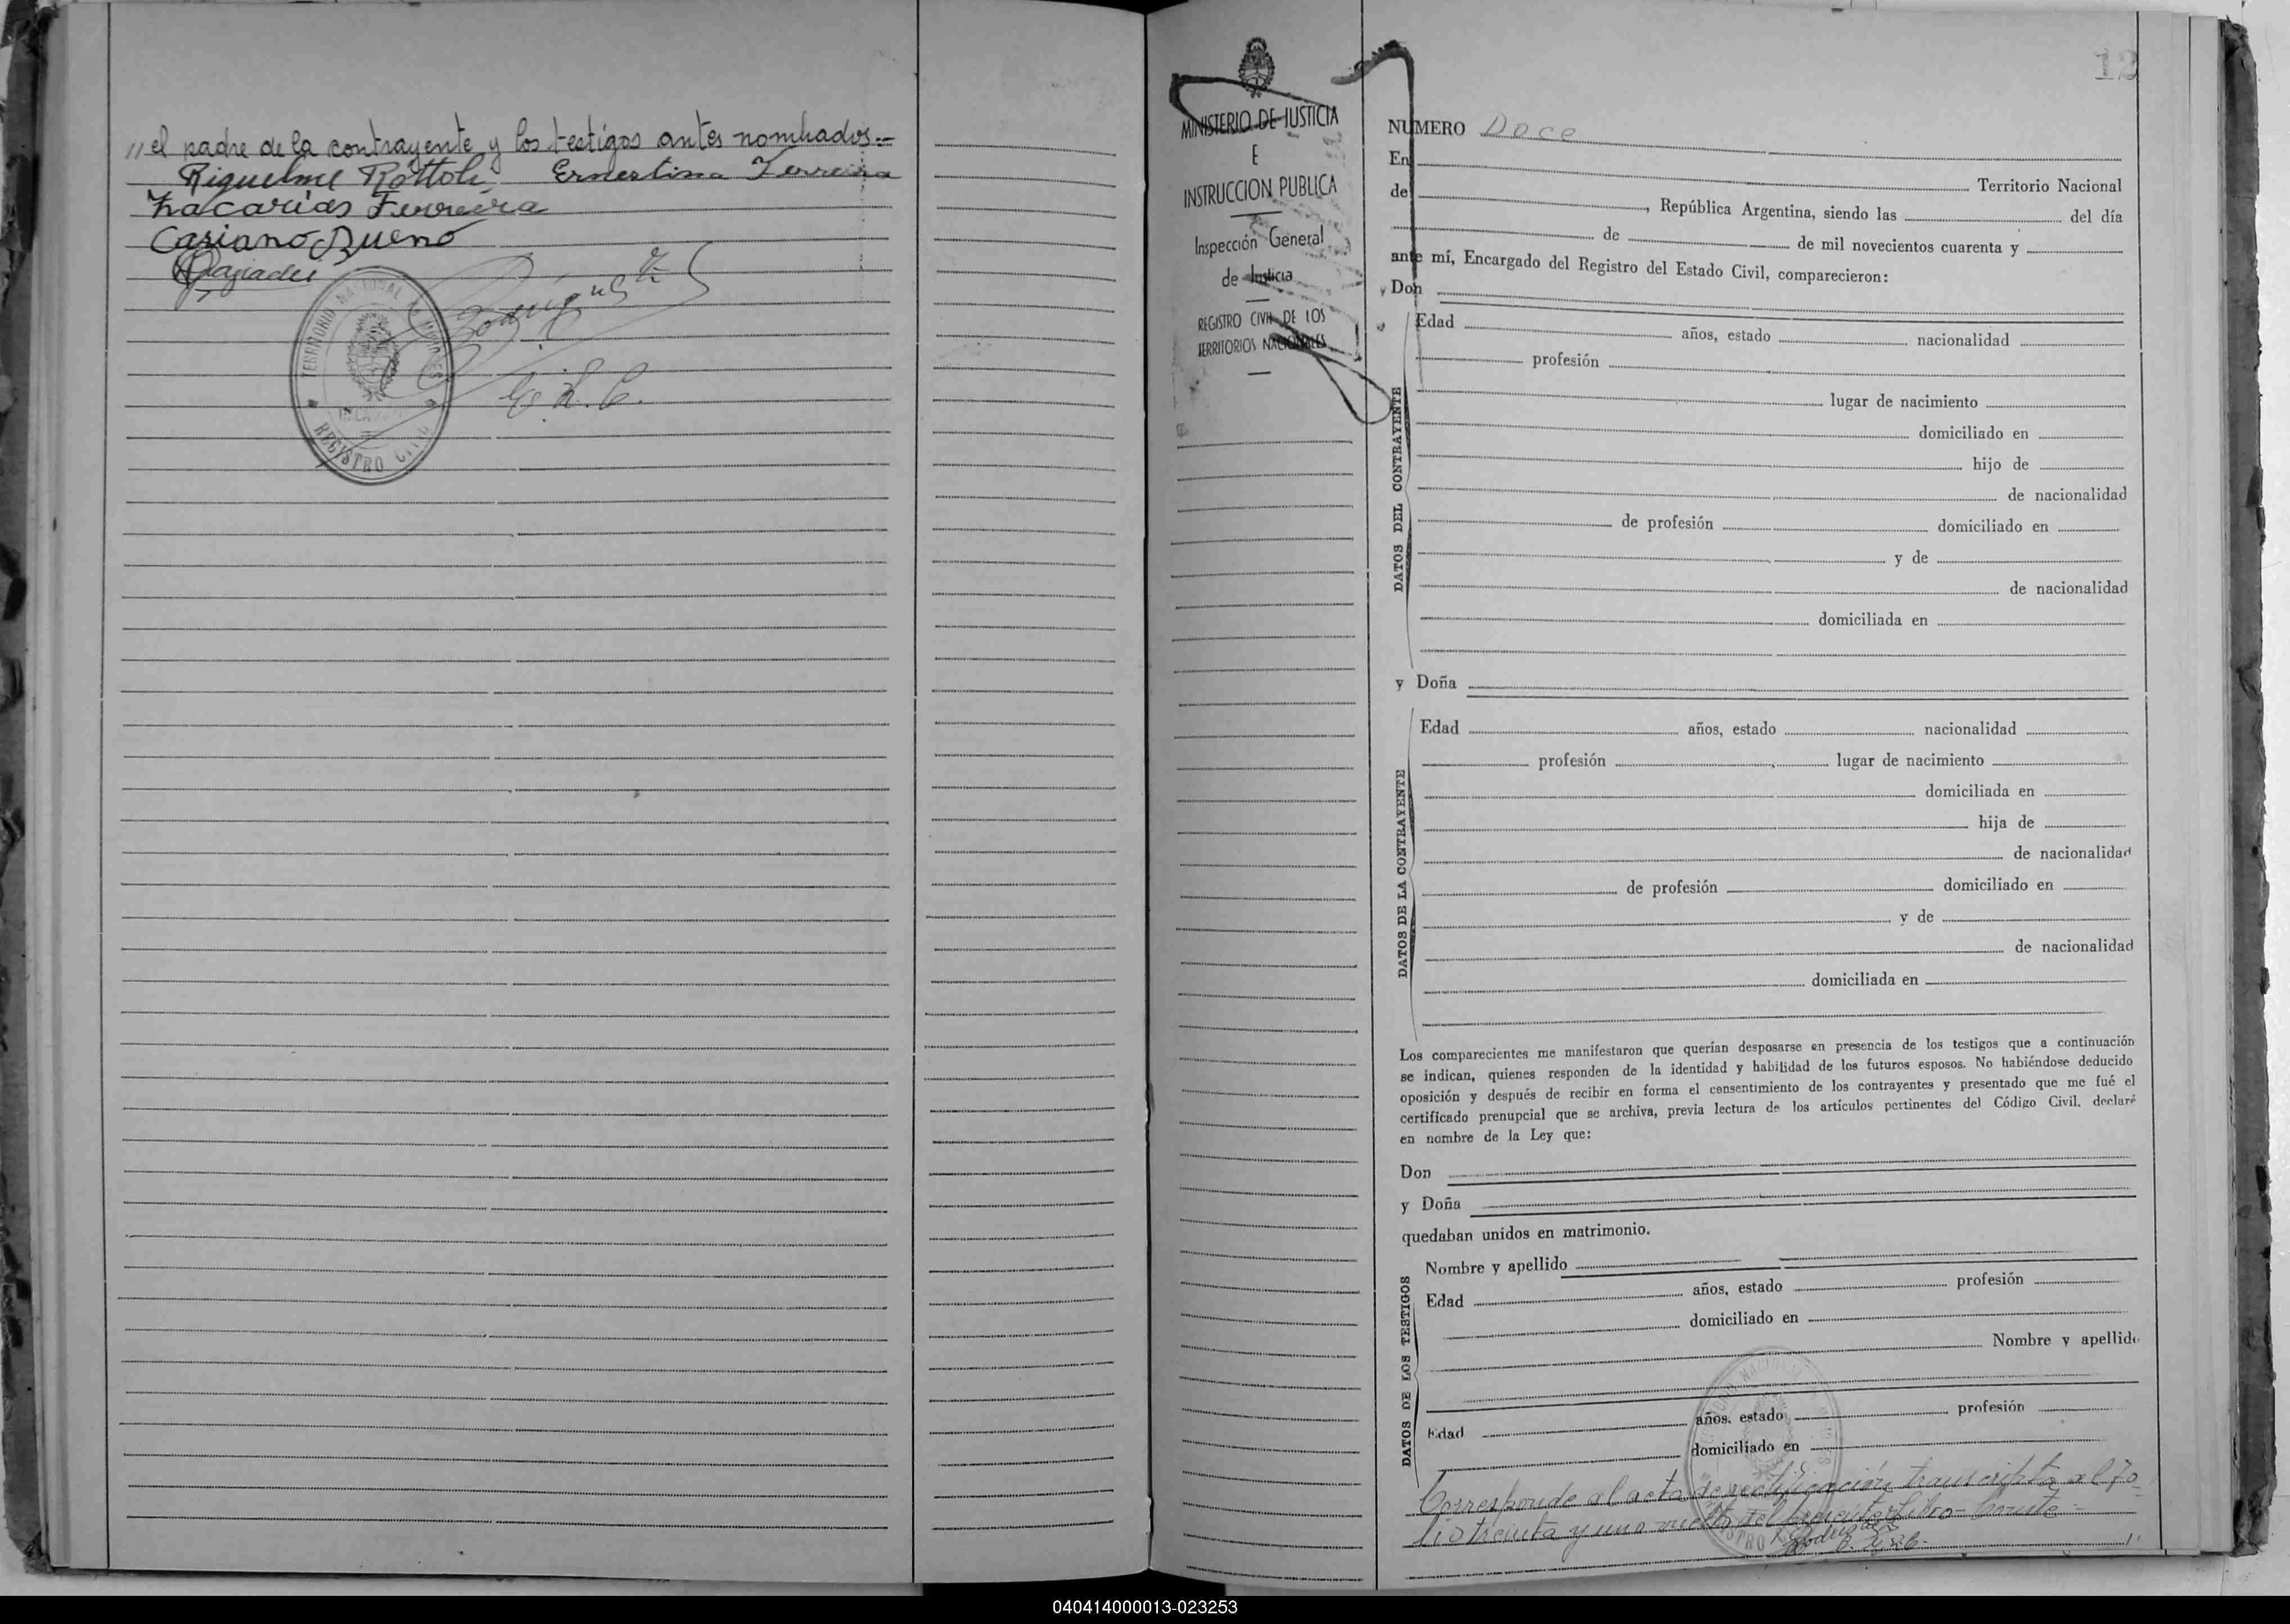 // el padre de la contrayente y los testigos antes nombrados.=
Riquelme Rottoli Ernestina Ferreira
Zacarias Ferreira
Casiano Bueno
TERRITORIO NACIONAL DE MISIONES
REGISTRO CIVIL
E. R. C.
MINISTERIO DE JUSTICIA
E
INSTRUCCION PUBLICA
Inspección General
de Justicia
REGISTRO CIVIL DE LOS
TERRITORIOS NACIONALES
12
NUMERO Doce
En
Territorio Nacional
de , República Argentina, siendo las del día
de de mil novecientos cuarenta y
ante mí, Encargado del Registro del Estado Civil, comparecieron:
Don
DATOS DEL CONTRAYENTE
Edad años, estado nacionalidad
profesión
lugar de nacimiento
domiciliado en
hijo de
de nacionalidad
de profesión domiciliado en
y de
de nacionalidad
domiciliada en
y Doña
DATOS DE LA CONTRAYENTE
Edad años, estado nacionalidad
profesión lugar de nacimiento
domiciliada en
hija de
de nacionalidad
de profesión domiciliado en
y de
de nacionalidad
domiciliada en
Los comparecientes me manifestaron que querían desposarse en presencia de los testigos que a continuación
se indican, quienes responden de la identidad y habilidad de los futuros esposos. No habiéndose deducido
oposición y después de recibir en forma el consentimiento de los contrayentes y presentado que me fué el
certificado prenupcial que se archiva, previa lectura de los artículos pertinentes del Código Civil, declaré
en nombre de la Ley que:
Don
y Doña
quedaban unidos en matrimonio.
DATOS DE LOS TESTIGOS
Nombre y apellido
Edad años, estado profesión
domiciliado en
Nombre y apellido
Edad años, estado profesión
domiciliado en
Corresponde al acta de rectificación transcripta al fo-
lio treinta y uno vuelta del presente libro- Conste=
040414000013-023253